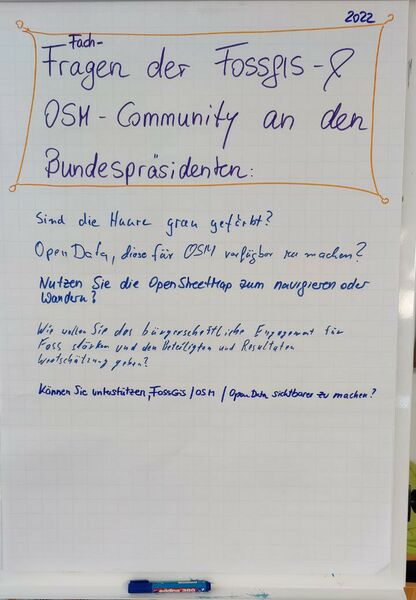 2022
Fach-
Fragen der FOSSGIS-&
OSM-Community an den
Bundespräsidenten:
Sind die Haare grau gefärbt?
Open Data, diese für OSM verfügbar zu machen?
Nutzen Sie die OpenStreetMap zum navigieren oder
Wandern?
Wie wollen Sie das bürgerschaftliche Engagement für
Foss stärken und den Beteiligten und Resultaten
Wertschätzung geben?
Können Sie unterstützen, FossGis / OSM / Open Data sichtbarer zu machen?
edding 380